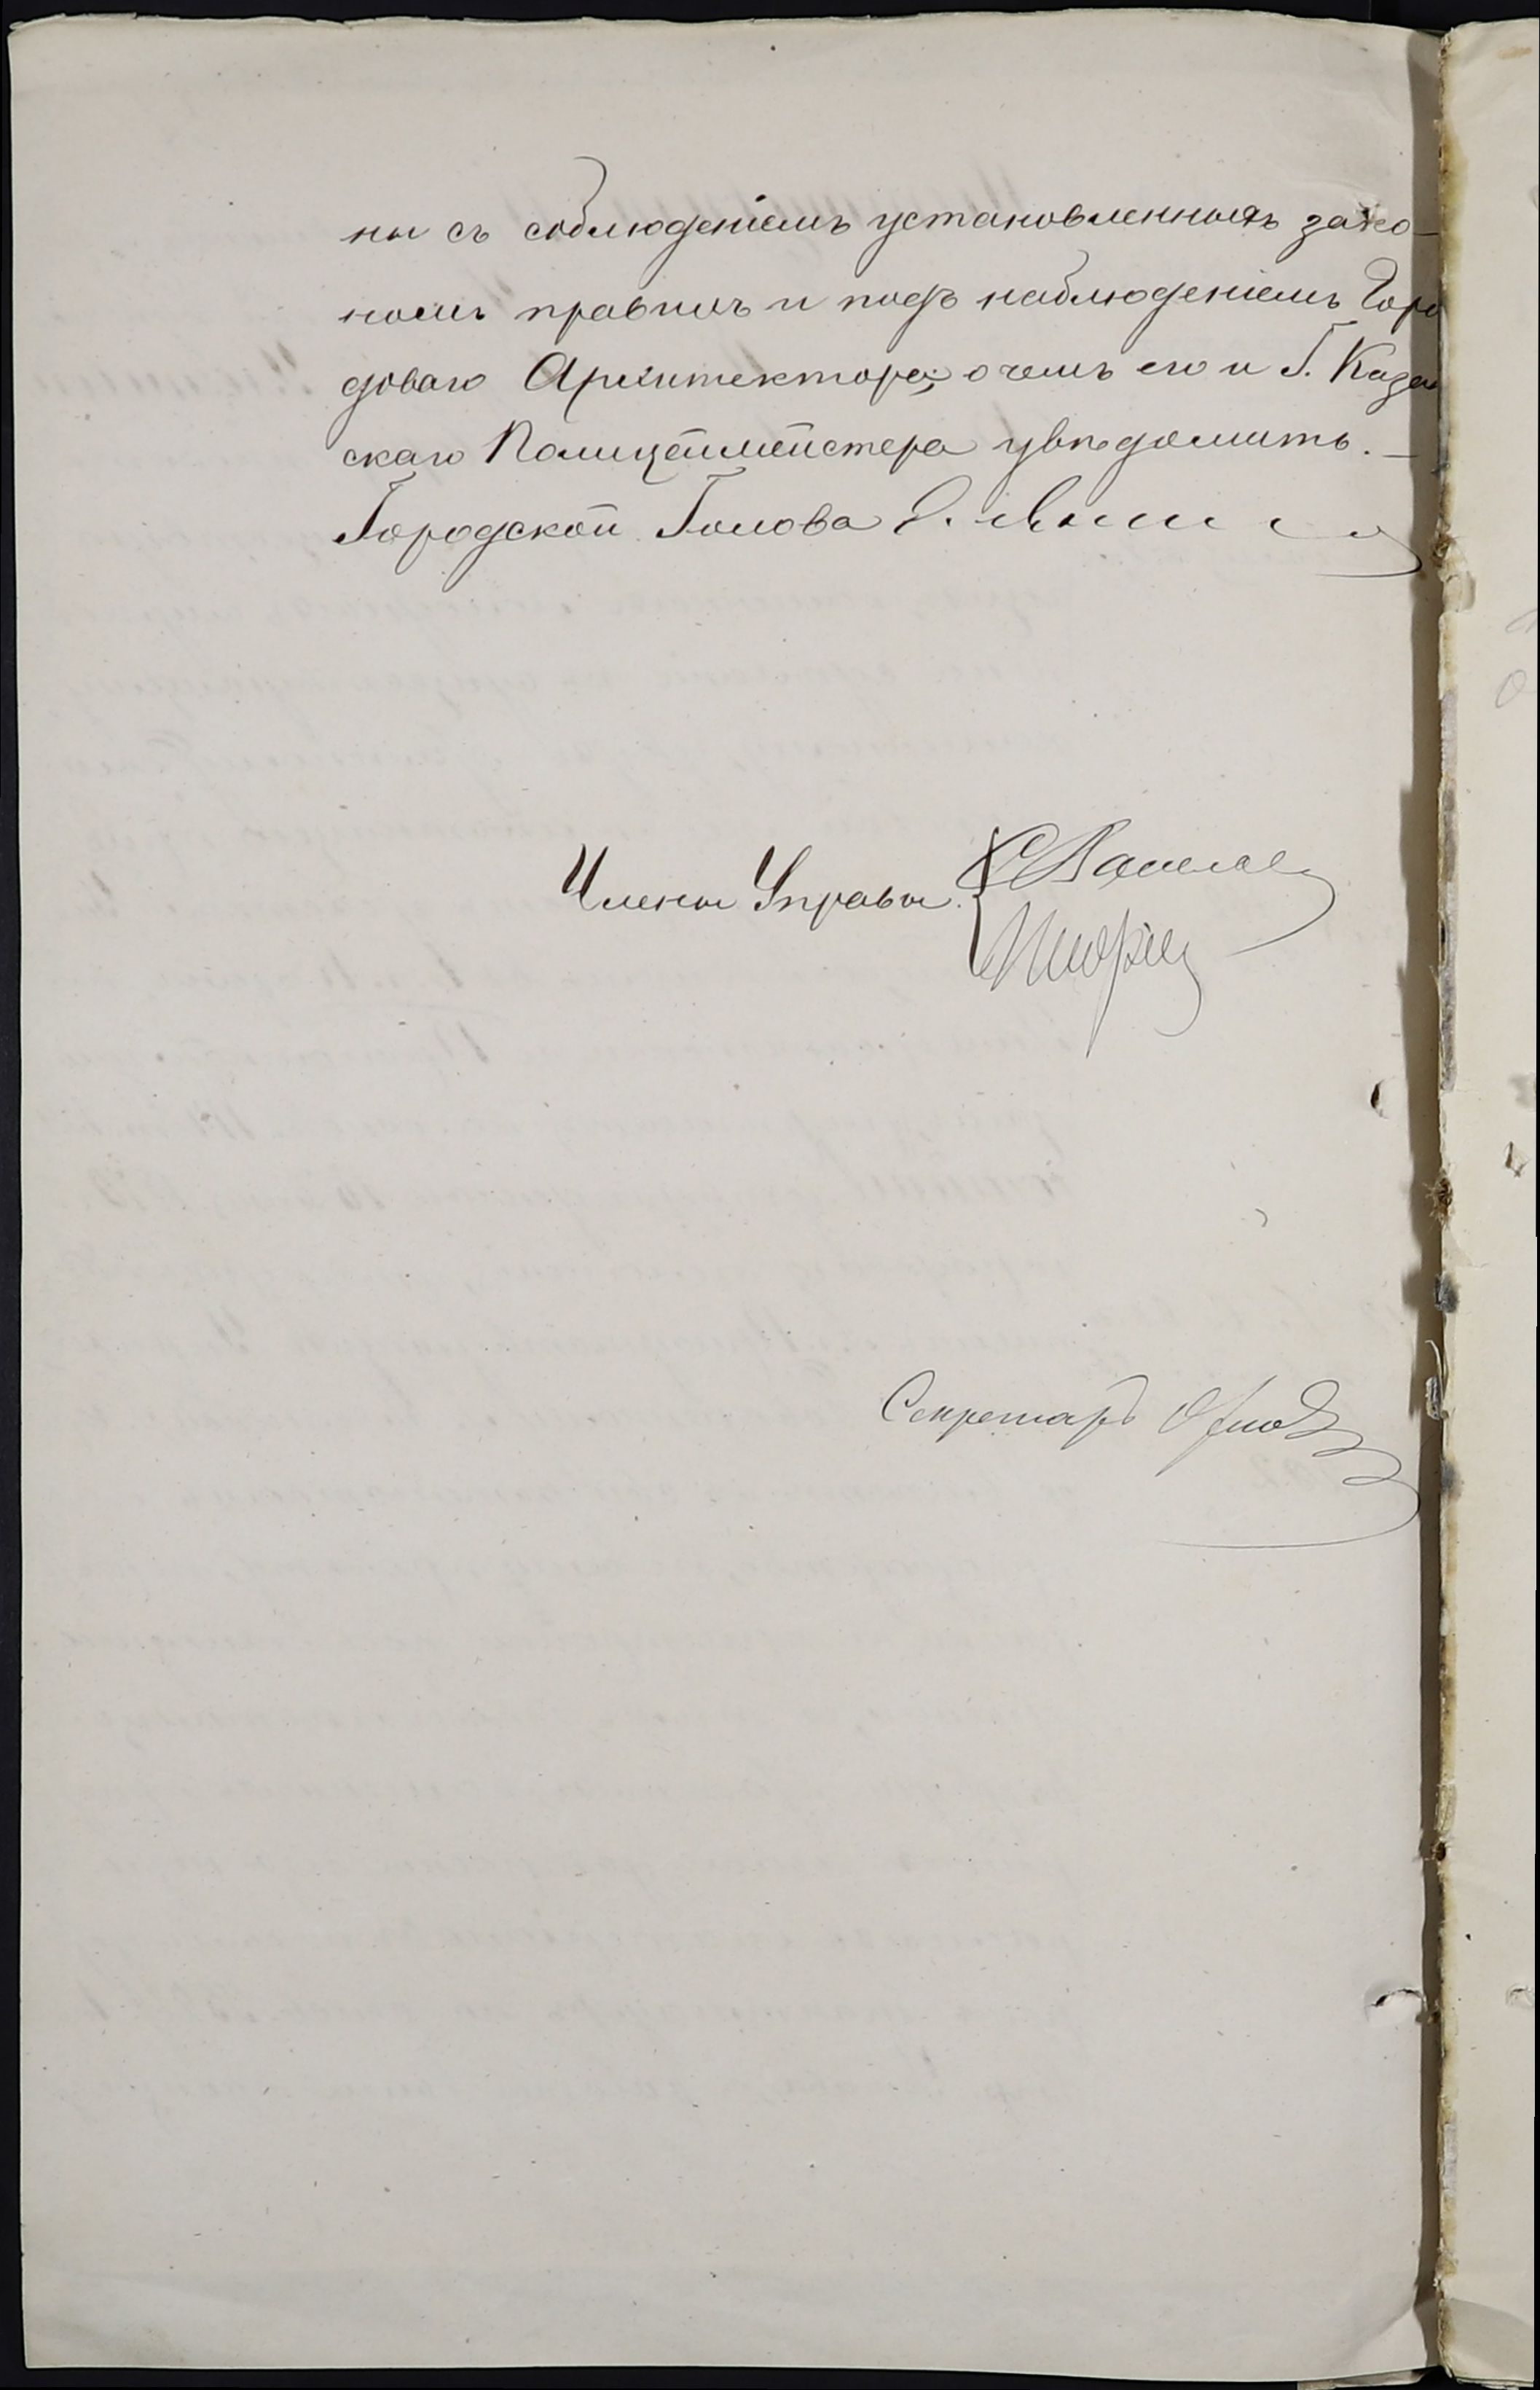 ны съ соблюденіемъ установленныхъ зако-
номъ правилъ и подъ наблюденіемъ Горо
доваго Архитектора, о чемъ его и Г. Казан
скаго Полицеймейстера увѣдомить.—
Городской Голова
Члены Управы
Секретарь